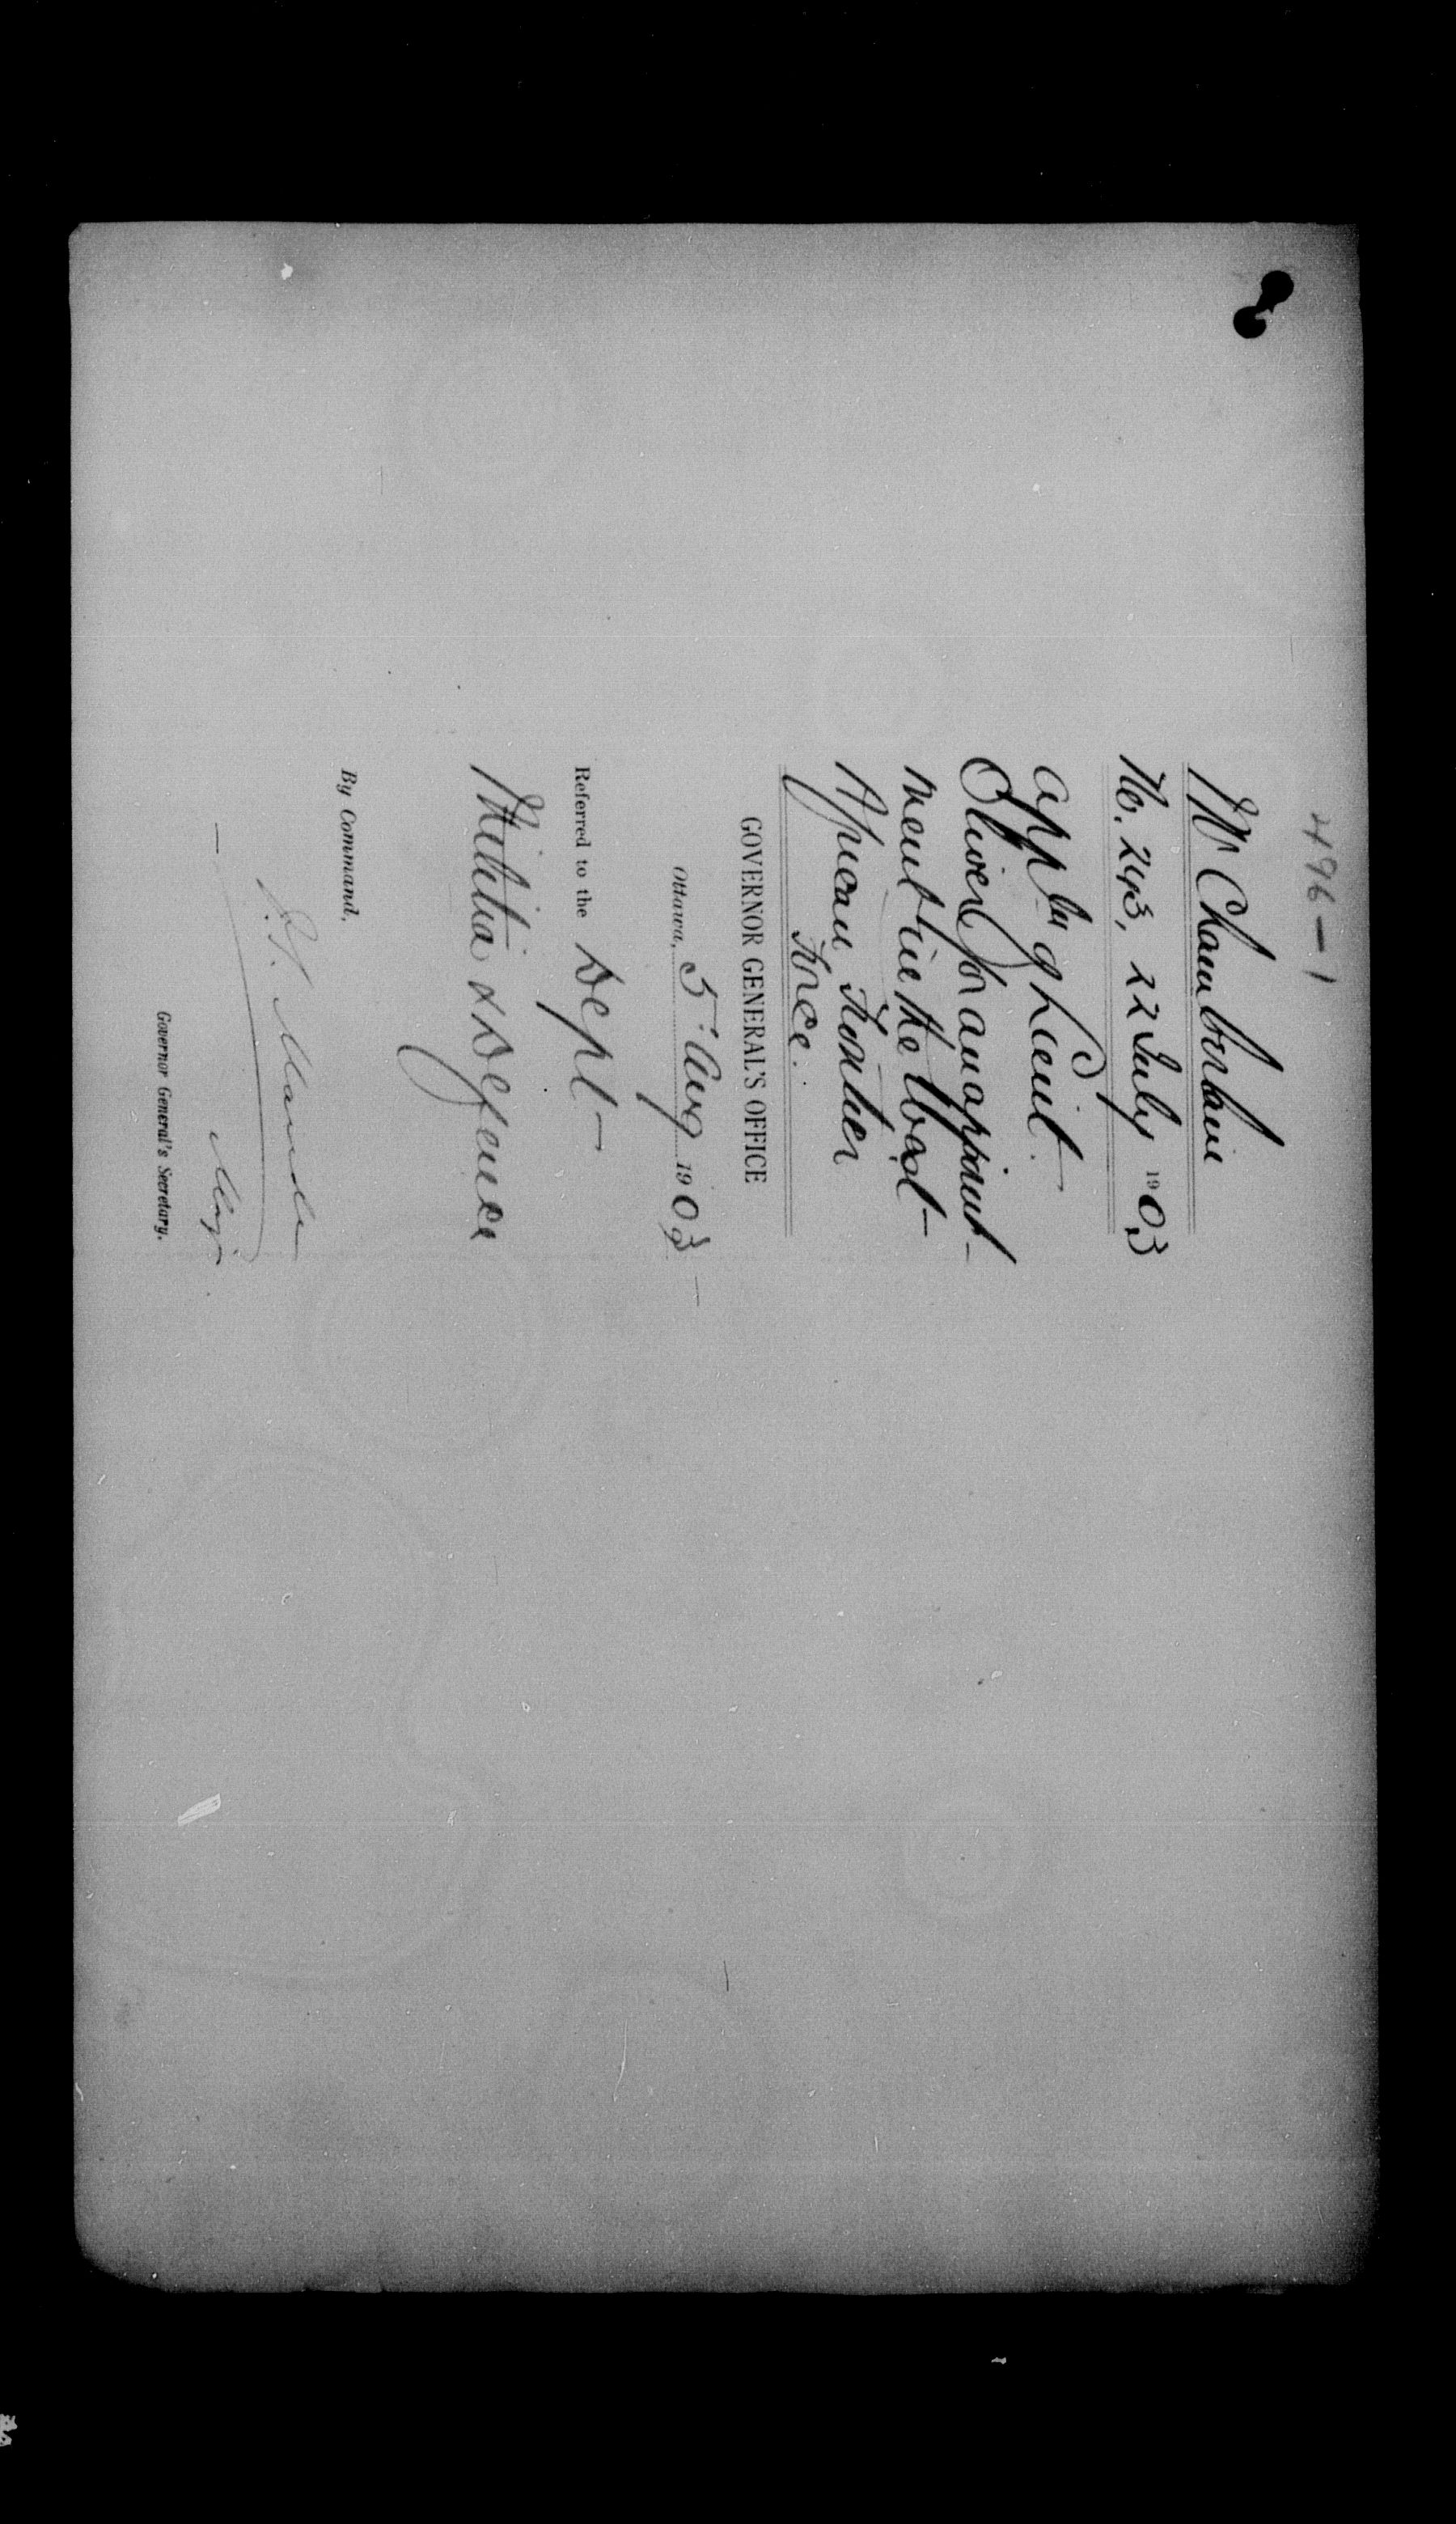 496-1
Mr Chamberlain
No. 243, 22 July 1903
appln of Lieut.
Oliver for an appoint-
ment in the West
African Frontier
Force.
GOVERNOR GENERAL'S OFFICE
Ottawa, 5 Aug 1903
Referred to the Dept
Militia & Defence
By Command,
Major
Governor General's Secretary.